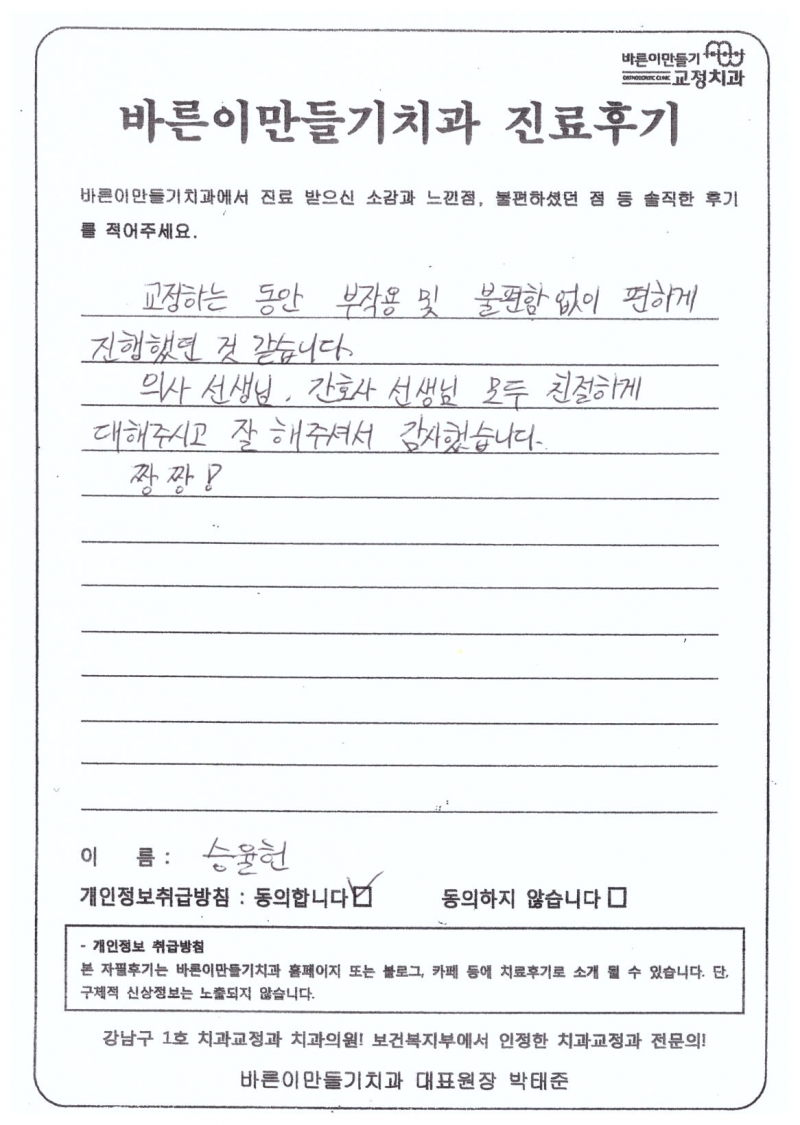 바른이만들기
ORTHODONTIC CLINIC 교정치과
바른이만들기치과 진료후기
바른이만들기치과에서 진료 받으신 소감과 느낀점, 불편하셨던 점 등 솔직한 후기
를 적어주세요.
교정하는 동안 부작용 및 불편함 없이 편하게
진행했던 것 같습니다.
의사 선생님, 간호사 선생님 모두 친절하게
대해주시고 잘 해주셔서 감사했습니다.
짱짱!
이 름 : 승율헌
개인정보취급방침 : 동의합니다 동의하지 않습니다
- 개인정보 취급방침
본 자필후기는 바른이만들기치과 홈페이지 또는 블로그, 카페 등에 치료후기로 소개 될 수 있습니다. 단,
구체적 신상정보는 노출되지 않습니다.
강남구 1호 치과교정과 치과의원! 보건복지부에서 인정한 치과교정과 전문의!
바른이만들기치과 대표원장 박태준